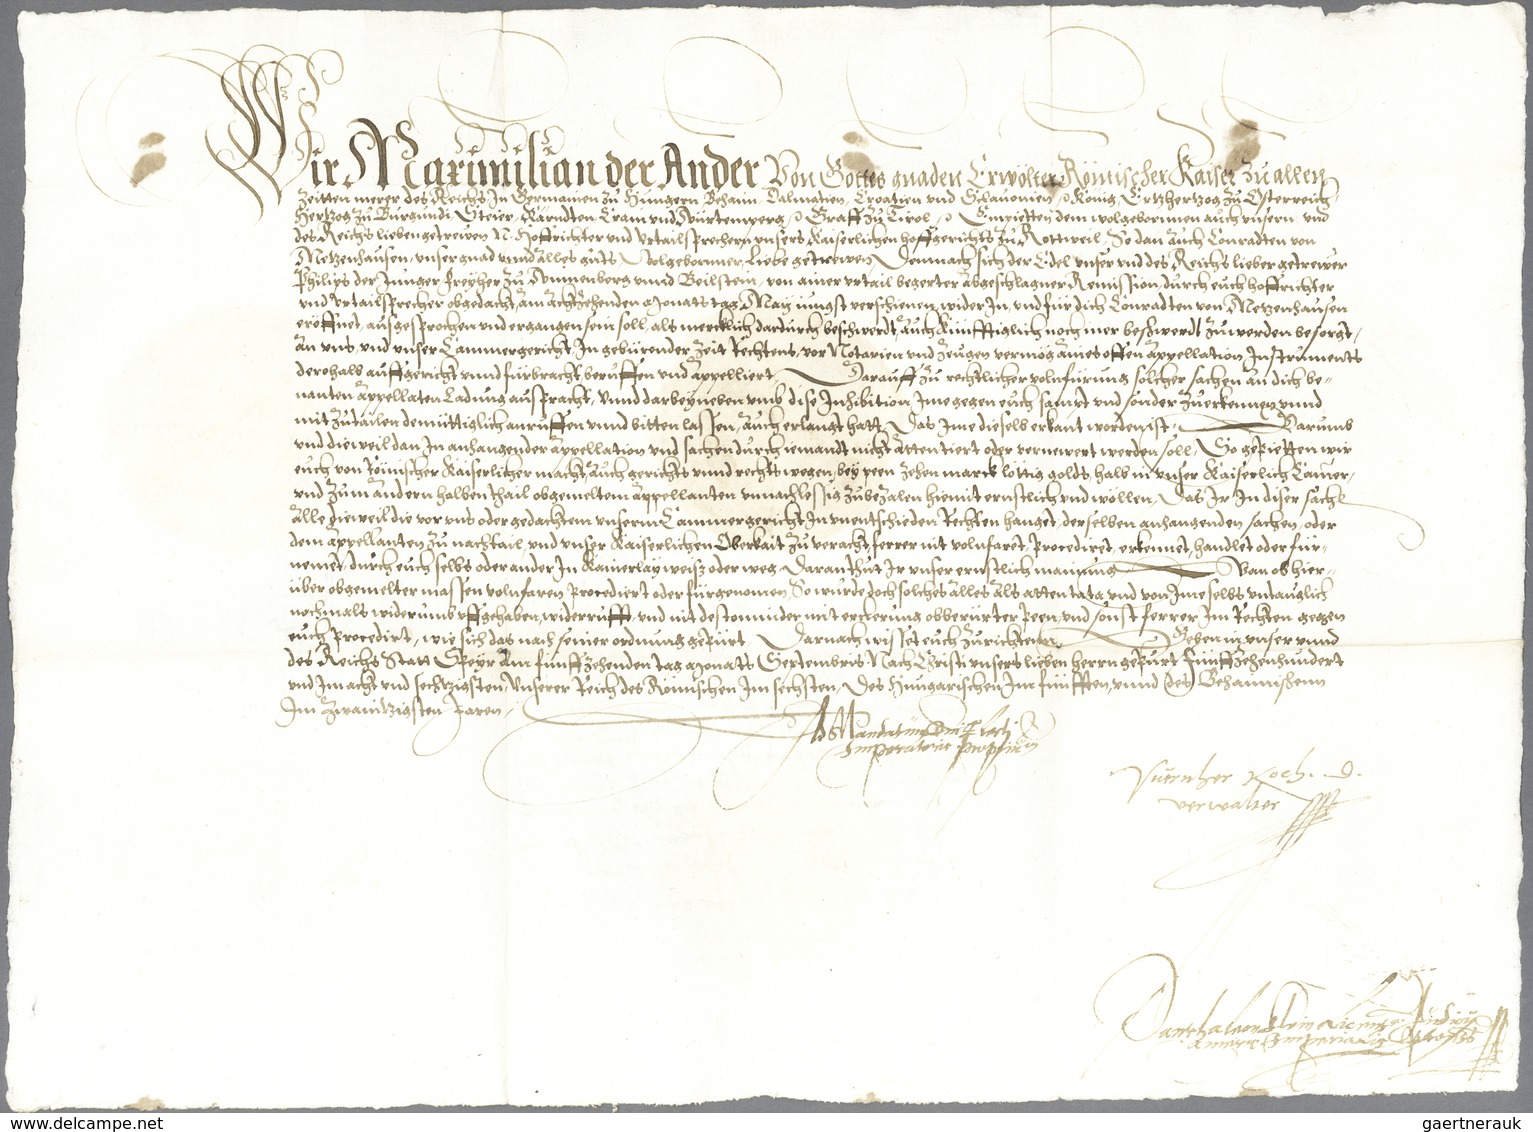 Wir Maximilian der Ander Von Gottes gnaden Erwölter Römischer Kaiser zu allen
Zeitten merer des Reichs In Germanien zu Hungern Behaim Dalmatien Croatien und Sclavonien König Ertzhertzog zu Österreich
Hertzog zu Burgundi Steier Kärndten Crain und Würtemperg Graff zu Tirol Empietten dem wolgebornnen auch unsern und
des Reichs lieben getrewen N. Hoffrichter und Urtailsprechern unsers Kaiserlichen hoffgerichts zu Rottweil, So dan auch Conradten von
Metzenhausen, unser gnad unnd alles guts Wolgebornner, Liebe getrewen, Demnach sich der Edel unser und des Reichs lieber getrewer
Philips der Junger freyher zu Winnenberg unnd Beilstein, von ainer urtail begerter abgeschlagner Remission durch euch hoffrichter
und Urtailsprecher obgedacht, am achtzehenden Monats tag Maij jungst verschienen, wider In, und für dich Conradten von Metzenhausen
eröffnet, ausgesprochen und ergangen sein soll, als mercklich dardurch beschwerdt, auch künfftiglich noch mer beschwerdt zu werden besorgt,
An uns, und unser Cammergericht, In gebürender zeit Rechtens, vor Notarien und zeugen vermög aines offen appellation Instruments
derohalb auffgericht unnd fürbracht, beruffen und appelliert Darauff zu rechtlicher volnfürung solcher sachen an dich be-
nanten appellaten Ladung aussbracht, Unnd darbeyneben umb dise Inhibition Ime gegen euch sampt und sonder zuerkennen unnd
mitzutailen demüttiglich anruffen und bitten lassen, auch erlangt hatt, Das Ime dieselb erkant worden ist, Darumb
und dieweil dan In anhangender appellation und sachen durch jemandt nicht attentiert oder vernewert werden soll, So gepietten wir
euch von Römischer Kaiserlicher macht, auch gerichts unnd rechts wegen, bey peen zehen marck löttigs golds, halb in unser Kaiserlich Camer-
und zum andern halben thail obgemeltem appellanten unnachlessig zubezalen hiemit ernstlich und wöllen, Das Ir In diser sach
alle dieweil die vor uns oder gedachtem unserm Cammergericht In unentschieden Rechten hanget, derselben anhangenden sachen, oder
dem appellanten zu nachtail, und unser Kaiserlichen Oberkait zu veracht, ferrer nit volnfaret, Procedieret, erkennet, handlet oder für-
nemet, durch euch selbs oder ander In kainerlay weiß oder weg Daran thut Ir unser ernstlich mainung Wan ob hier-
über obgemelter massen volnfaren Procediert oder fürgenomen, So wurde doch solches alles als attentata und von Ime selbs untauglich
nochmals widerumb uffgehaben, widerrufft, und nit destominder mit erclerung obberürter peen, und sonst ferrer Im Rechten gegen
euch Procedirt, wie sich das nach seiner ordnung gepürt, Darnach wisset euch zurichten, Geben in unser unnd
des Reichs Statt Speyr am fünffzehenden tag Monats Septembris Nach Christi unsers lieben herrn gepurt fünffzehenhundert
und Im acht und sechtzigsten, Unserer Reich des Römischen Im sechsten, Des Hungarischen Im fünfften, unnd des Behaimischenn
Im zwaintzigsten Jaren.
Ad Mandatum Dni Electi
Imperatoris proprium
Koch. D.
verwalter
Imperialis
www.delcampe.net
gaertnerauk